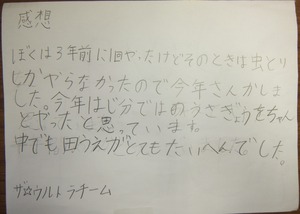 感想
ぼくは3年前に1回やったけどそのときは虫とり
しかやらなかったので今年さんかしま
した。今年はじ分ではのうさぎょうをちゃん
とやったと思っています。
中でも田うえがとてもたいへんでした。
ザ☆ウルトラチーム